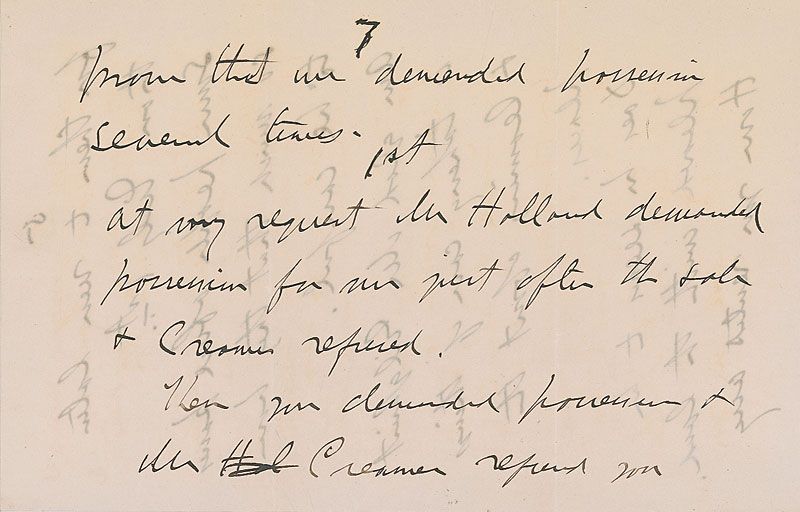 7
prove that we demanded possession
several times.
1st
At my request Mr Holland demanded
possession for me just after the sale
& Creamer refused.
Then you demanded possession &
Mr Hol Creamer refused you